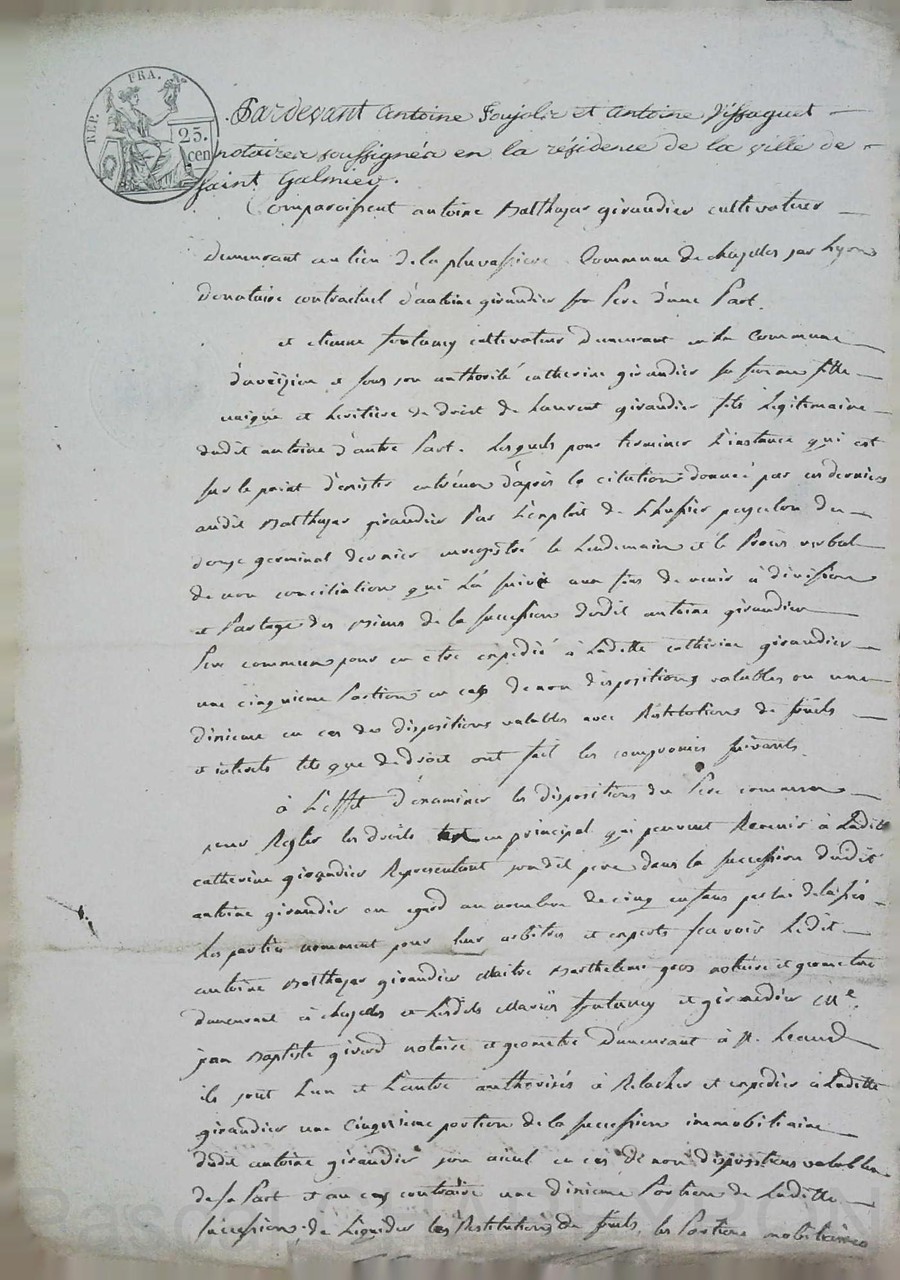 REP. FRA.
25.
cen
Pardevant antoine Poujolie et antoine Vissaguet
notaires soussignés en la résidence de la ville de
saint Galmier.
Comparoissent antoine Balthazar giraudier cultivateur
demeurant au lieu de la pluvassiere Commune de chazelles sur Lyon
Donataire contractuel d'antoine giraudier son Pere d'une Part.
et etienne fontanay cultivateur demeurant en la Commune
d'aveizieu et sous son authorité catherine giraudier sa femme fille
unique et heritiere de droit de Laurent giraudier fils Legitimaire
dudit antoine d'autre Part. Lesquels pour terminer L'instance qui est
sur le point d'exister entr'eux d'après la citation donnée par ces derniers
audit Balthazar giraudier Par L'exploit de L'huissier du
douze germinal dernier enregistré le Lendemain et le Procès verbal
de non conciliation qui L'a suivi aux fins de venir à division
et Partage des Biens de la succession dudit antoine giraudier
Pere commun pour en etre expedié à Laditte catherine giraudier
une cinquieme Portion en cas de non dispositions valables ou une
dixieme en cas des dispositions valables avec Restitutions de fruits
et interets tels que de droit ont fait les compromis suivants
à L'effet d'examiner les dispositions du Pere commun
pour Regler les droits en principal qui peuvent Revenir à Laditte
catherine giraudier Representant sondit pere dans la succession dudit
antoine giraudier eu egard au nombre de cinq enfans par lui delaissés
Les parties nomment pour leur arbitres et experts sçavoir Ledit
antoine Balthazar giraudier Maitre Barthelemi gros notaire et geometre
demeurant à chazelles et Lesdits Mariés fontanay et giraudier Me.
jean Baptiste girard notaire et geometre Demeurant à St.
ils sont L'un et L'autre authorisés à Relacher et expedier à Laditte
giraudier une cinquieme portion de la succession immobiliaire
dudit antoine giraudier son aïeul en cas de non dispositions valables
de sa Part et au cas contraire une dixieme Portion de Laditte
succession, de Liquider les Restitutions de fruits, les Portions mobiliaires